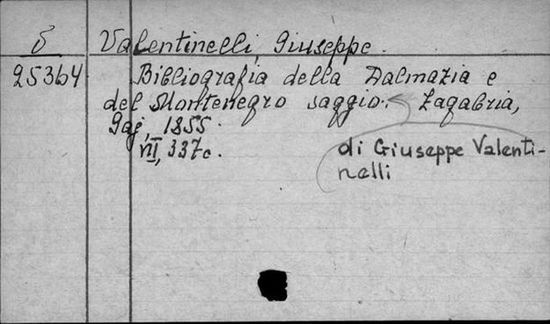 б Valentinelli, Giuseppe.
25364 Bibliografia della Dalmazia e
del Montenegro saggio. Zagabria,
Gaj, 1855.
VII, 337c.
di Giuseppe Valenti-
nelli